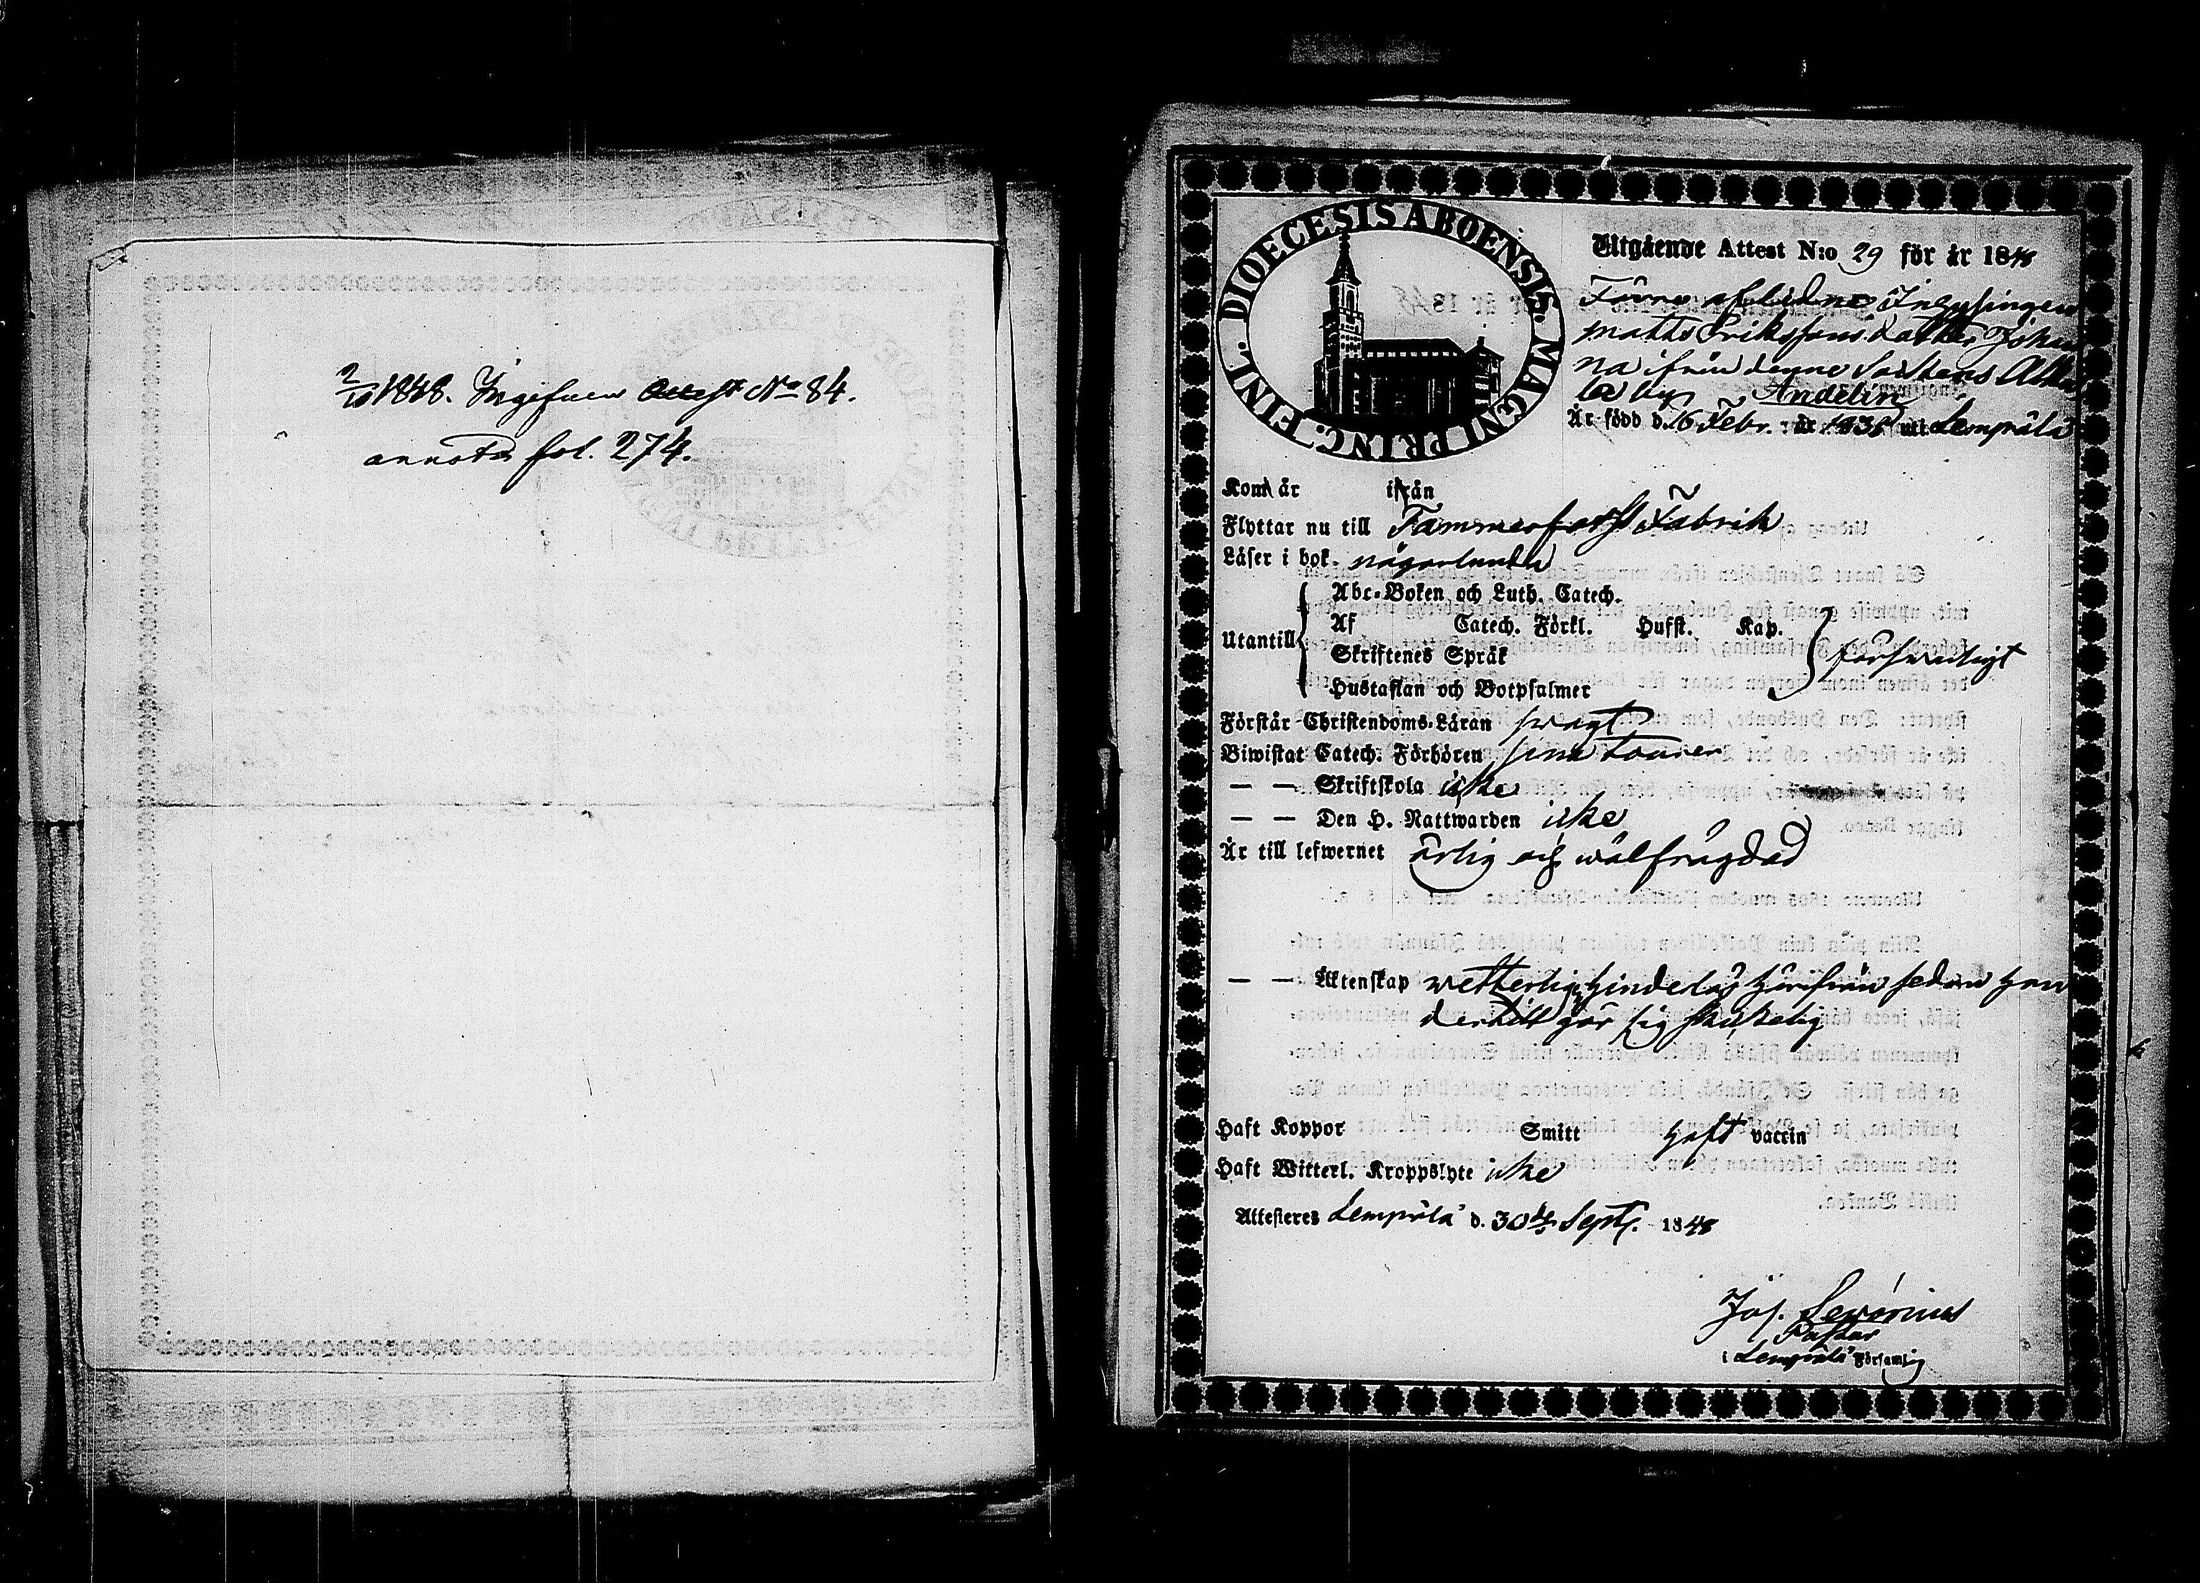 2/10 1848. Ingifven Attest No 84.
annot. fol. 274.
DIOECESIS ABOENSIS. MAGNI PRINC. FINL.
Utgående Attest N:o 29 för år 1848
Förra aflidne Inhysingen
Matts Erikssons dotter Johan
na ifrån denne Sockens
by Andelin
Är född d. 16 Febr. år 183 uti Lempälä
Kom år ifrån
Flyttar nu till Tammerfors Fabrik
Läser i bok. någorlunda
Utantill
Abc-Boken och Luth. Catech.
Af Catech. Förkl. Hufst. Kap.
Skriftenes Språk
Hustaflan och Botpsalmer
försvarligt
Förstår Christendoms-Läran svagt
Biwistat Catech. Förhören sina tourer
— — Skriftskola icke
— — Den H. Nattwarden icke
Är till lefwernet ärlig och wälfrägdad
— — Äktenskap wetterlig hinderlös härifrån sedan hon
dertill gör sig skickelig
Haft Koppor Smitt haft vaccin
Haft Witterl. Kroppslyte icke
Attesteres Lempälä d. 30de Sept. 1848
Jos. Sevonius
Pastor
i Lempälä Församlig